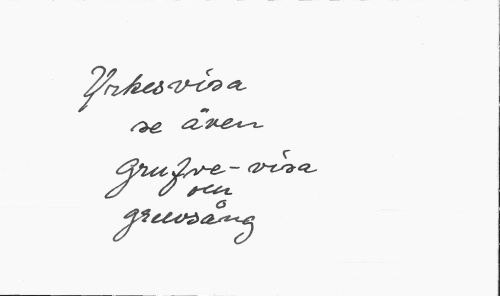 Yrkesvisa
se även
grufve-visa
och
gruvsång